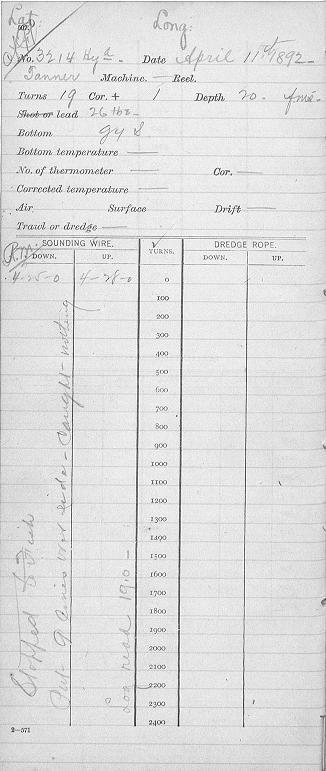 Lat: Long:
No. 3214 Hyd. Date April 11th 1892-
Tanner Machine. — Reel.
Turns 19 Cor. + 1 Depth 20- fms-
Shot or lead 26 lbs-
Bottom gy S
Bottom temperature —
No. of thermometer — Cor. —
Corrected temperature —
Air Surface Drift —
Trawl or dredge —
P.M. SOUNDING WIRE. TURNS. DREDGE ROPE.
DOWN. UP. DOWN. UP.
4-25-0 4-28-0 0
100
200
300
400
500
600
700
800
900
1000
1100
1200
1300
1400
1500
1600
1700
1800
1900
2000
2100
2200
2300
2400
Stopped to Fish
Put 9 lines over side - Caught nothing
Log read 19.0-
2—571